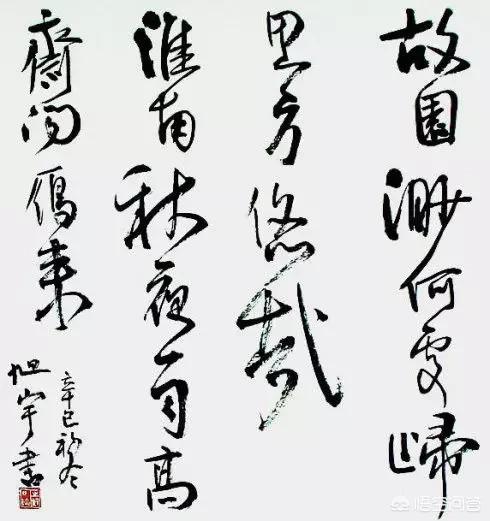 故園渺何處歸
思方悠哉
淮南秋夜雨高
齋聞鴈来
辛巳初冬
旭宇書
悟空问答